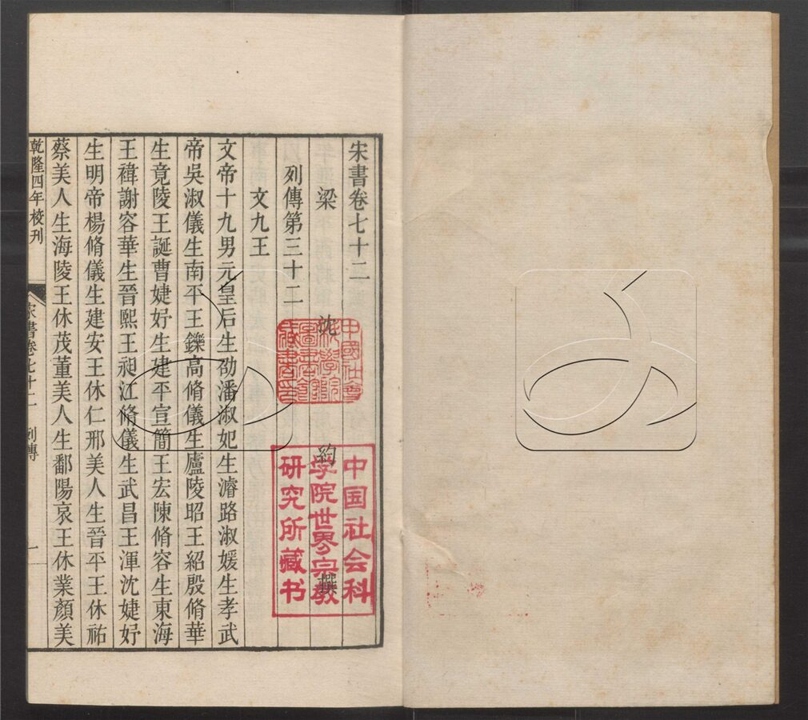 宋書卷七十二
梁 沈 約 撰
列傳第三十二
文九王
文帝十九男元皇后生劭潘淑妃生濬路淑媛生孝武
帝吳淑儀生南平王鑠高脩儀生廬陵昭王紹殷脩華
生竟陵王誕曹婕妤生建平宣簡王宏陳脩容生東海
王禕謝容華生晉熙王昶江脩儀生武昌王渾沈婕妤
生明帝楊脩儀生建安王休仁邢美人生晉平王休祐
蔡美人生海陵王休茂董美人生鄱陽哀王休業顏美
乾隆四年校刊
宋書卷七十二 列傳 一
中國社會
科學院
圖書館
藏書印
中国社会科
学院世界宗教
研究所藏书